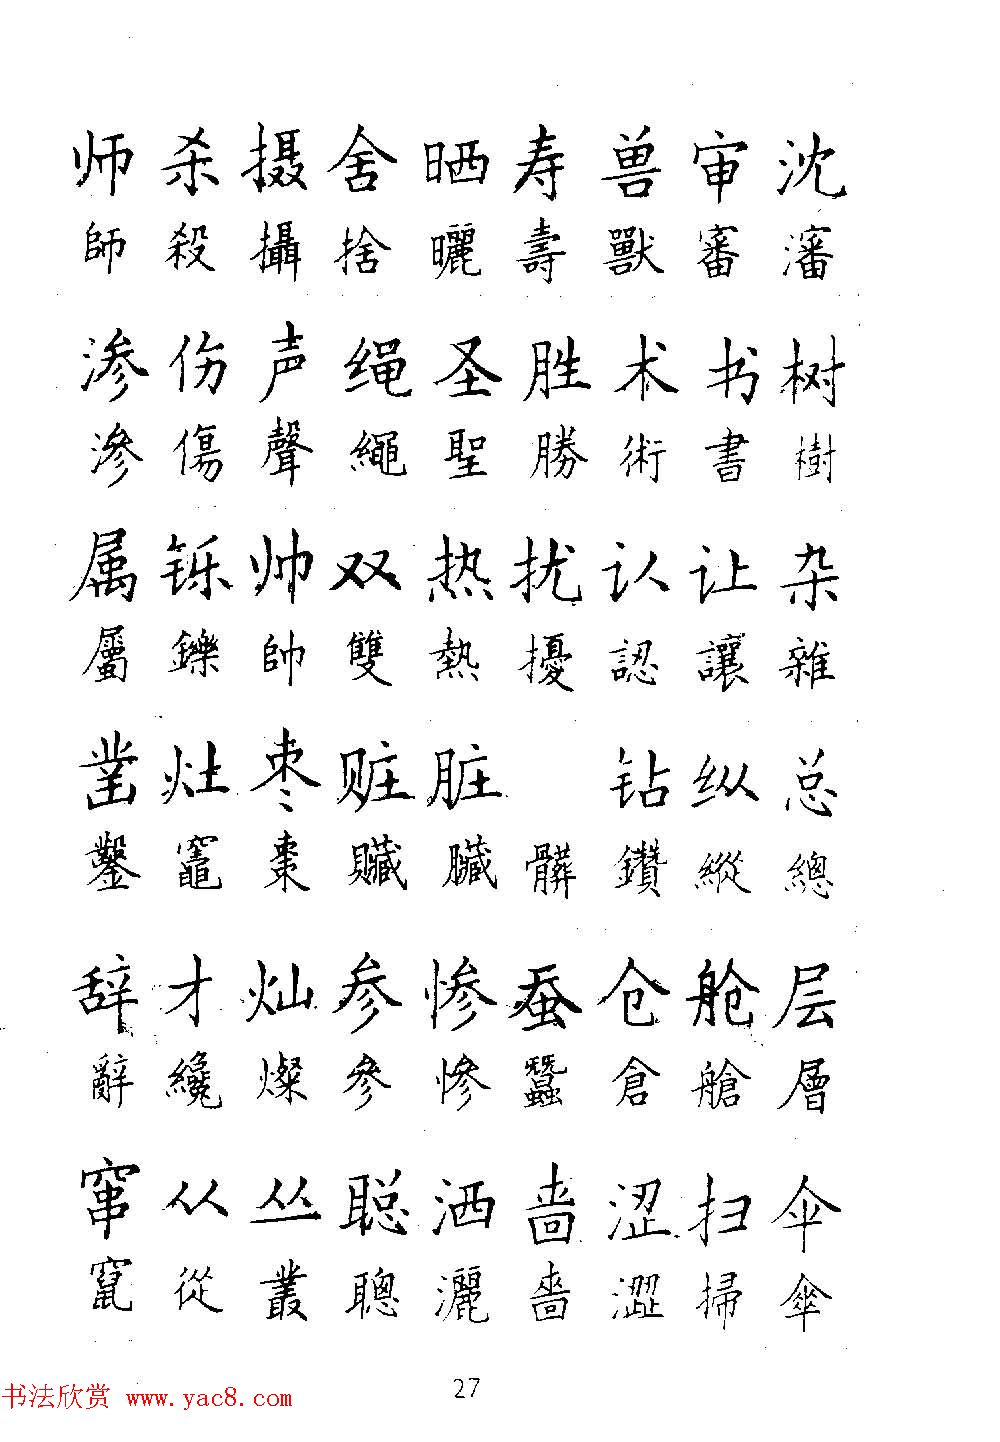 师杀摄舍晒寿兽审沈
師殺攝捨曬壽獸審瀋
渗伤声绳圣胜术书树
滲傷聲繩聖勝術書樹
属铄帅双热扰认让杂
屬鑠帥雙熱擾認讓雜
凿灶枣赃脏 钻纵总
鑿竈棗贓臟髒鑽縱總
辞才灿参惨蚕仓舱层
辭纔燦參慘蠶倉艙層
窜从丛聪洒啬涩扫伞
竄從叢聰灑嗇澀掃傘
27
书法欣赏 www.yac8.com